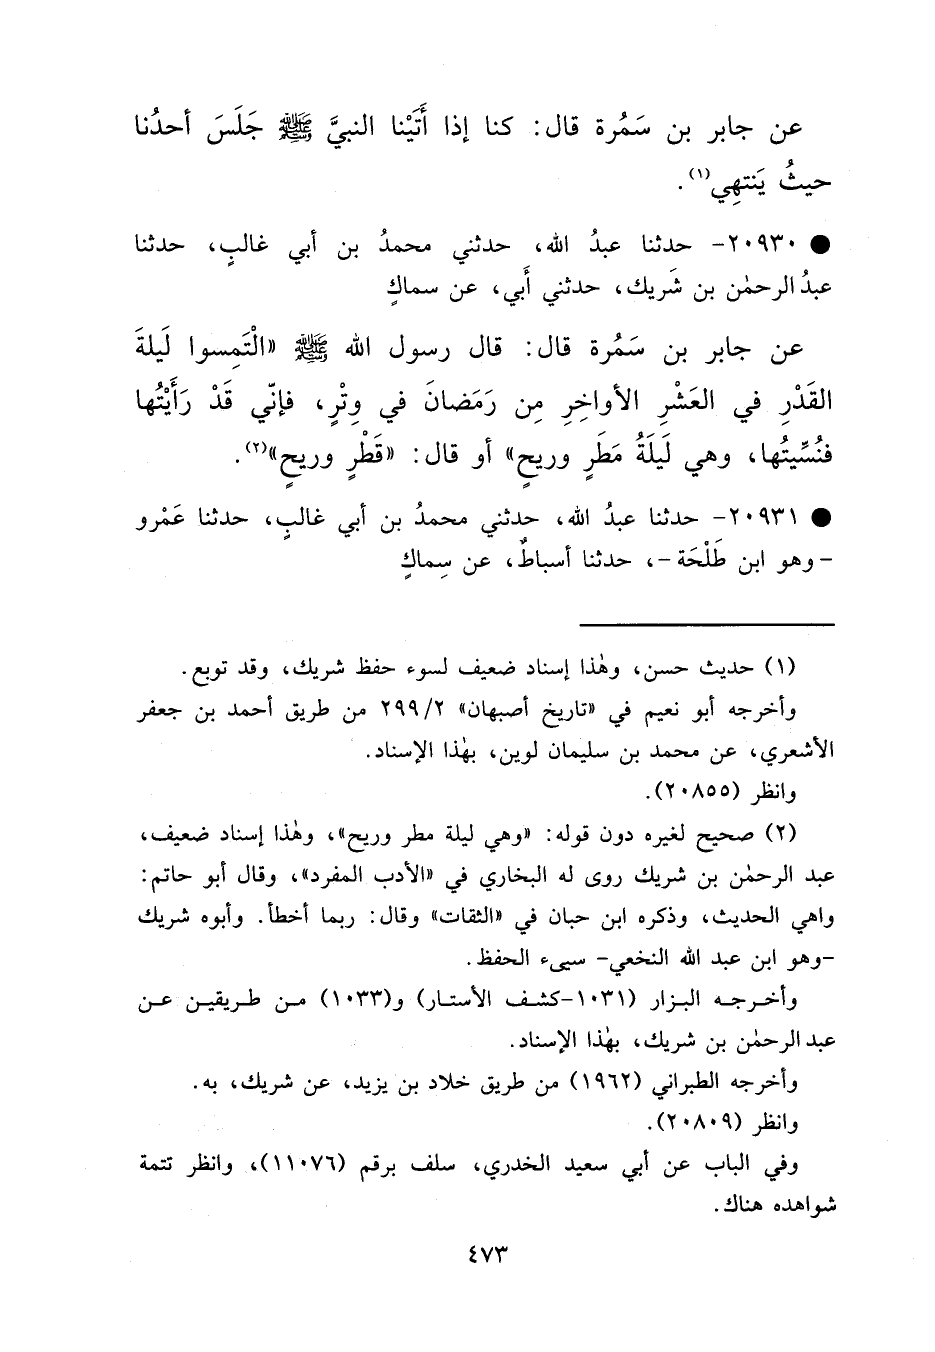 عن جابر بن سَمُرة قال: كنا إذا أَتَيْنا النبيَّ ﷺ جَلَسَ أحدُنا
حيثُ يَنتهِي(١).
● ٢٠٩٣٠- حدثنا عبدُ الله، حدثني محمدُ بن أبي غالبٍ، حدثنا
عبدُ الرحمٰن بن شَريك، حدثني أَبي، عن سماكٍ
عن جابر بن سَمُرة قال: قال رسول الله ﷺ «الْتَمِسوا لَيلةَ
القَدْرِ في العَشْرِ الأواخِرِ مِن رَمَضانَ في وِتْرٍ، فإنّي قَدْ رَأَيْتُها
فنُسِّيتُها، وهي لَيلَةُ مَطَرٍ وريحٍ» أو قال: «قَطْرٍ وريحٍ»(٢).
● ٢٠٩٣١- حدثنا عبدُ الله، حدثني محمدُ بن أبي غالبٍ، حدثنا عَمْرو
-وهو ابن طَلْحَة-، حدثنا أسباطٌ، عن سِماكٍ
(١) حديث حسن، وهٰذا إسناد ضعيف لسوء حفظ شريك، وقد توبع.
وأخرجه أبو نعيم في «تاريخ أصبهان» ٢٩٩/٢ من طريق أحمد بن جعفر
الأشعري، عن محمد بن سليمان لوين، بهٰذا الإسناد.
وانظر (٢٠٨٥٥).
(٢) صحيح لغيره دون قوله: «وهي ليلة مطر وريح»، وهٰذا إسناد ضعيف،
عبد الرحمٰن بن شريك روى له البخاري في «الأدب المفرد»، وقال أبو حاتم:
واهي الحديث، وذكره ابن حبان في «الثقات» وقال: ربما أخطأ. وأبوه شريك
-وهو ابن عبد الله النخعي- سيىء الحفظ.
وأخرجه البزار (١٠٣١-كشف الأستار) و(١٠٣٣) من طريقين عن
عبد الرحمٰن بن شريك، بهٰذا الإسناد.
وأخرجه الطبراني (١٩٦٢) من طريق خلاد بن يزيد، عن شريك، به.
وانظر (٢٠٨٠٩).
وفي الباب عن أبي سعيد الخدري، سلف برقم (١١٠٧٦)، وانظر تتمة
شواهده هناك.
٤٧٣